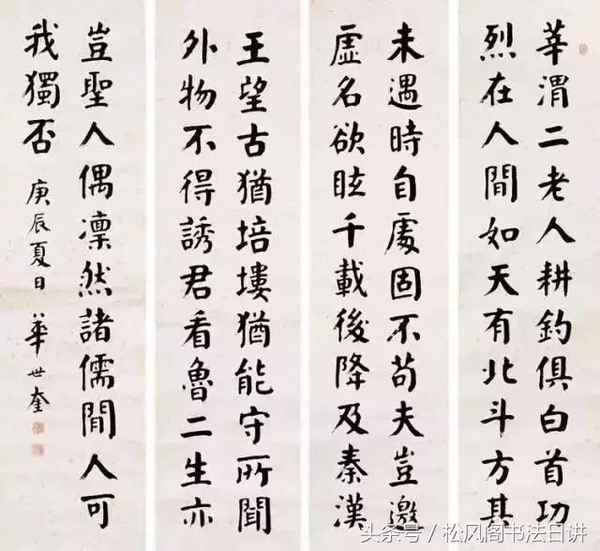 莘渭二老人耕釣俱白首功
烈在人間如天有北斗方其
未遇時自處固不苟夫豈邀
虛名欲眩千載後降及秦漢
王望古猶培塿猶能守所聞
外物不得誘君看魯二生亦
豈聖人偶凛然諸儒間人可
我獨否 庚辰夏日 華世奎
头条号／松风阁书法日讲